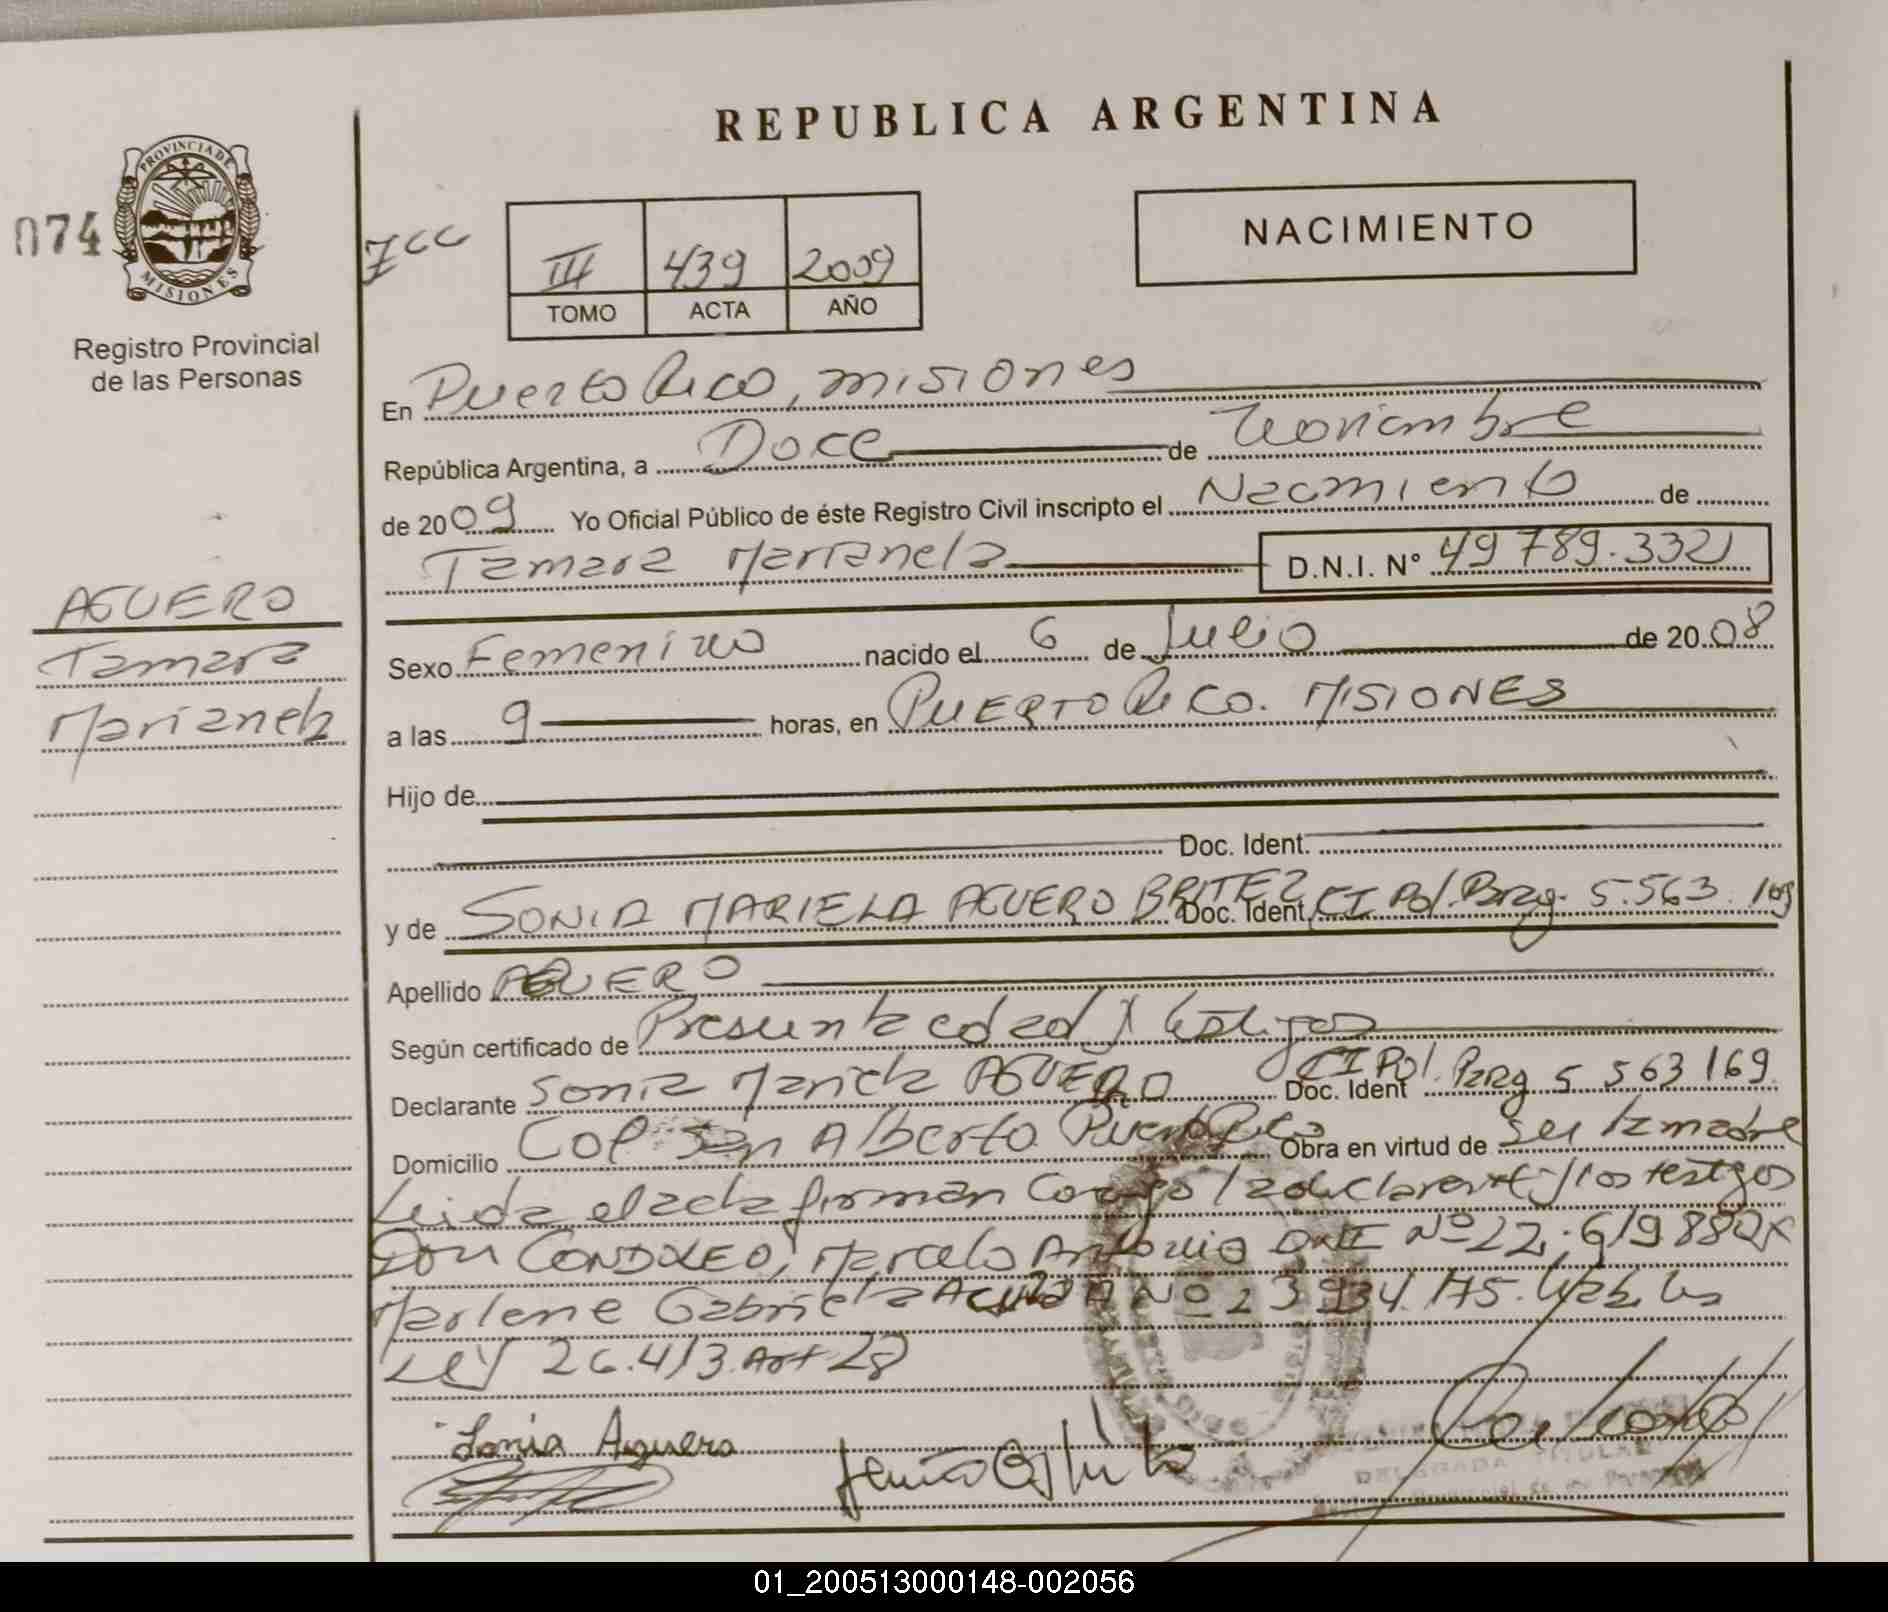 REPUBLICA ARGENTINA
PROVINCIA DE
MISIONES
074
Registro Provincial
de las Personas
III 439 2009
TOMO ACTA AÑO
NACIMIENTO
En Puerto Rico, misiones
República Argentina, a Doce de Noviembre
de 2009 Yo Oficial Público de éste Registro Civil inscripto el Nacimiento de
Tamara Marianela D.N.I. Nº 49 789.332
AGUERO
Tamara
Marianela
Sexo Femenino nacido el 6 de Julio de 2008
a las 9 horas, en PUERTO RICO. MISIONES
Hijo de
Doc. Ident.
y de SONIA MARIELA AGUERO BRITEZ Doc. Ident. CI Pol. Parg. 5.563.169
Apellido AGUERO
Según certificado de Presunta edad y testigos
Declarante Sonia Mariela AGUERO Doc. Ident CI Pol. Parg 5 563 169
Domicilio Col San Alberto Puerto Rico Obra en virtud de ser la madre
Leida el acta firman conmigo la declarante y los testigos
Don Marcelo Antonio DNI Nº 22.619.880
Marlene Gabriela Nº 23934.175.
Ley 26.413 Art 28
Sonia Aguero
DELEGADA TITULAR
01_200513000148-002056